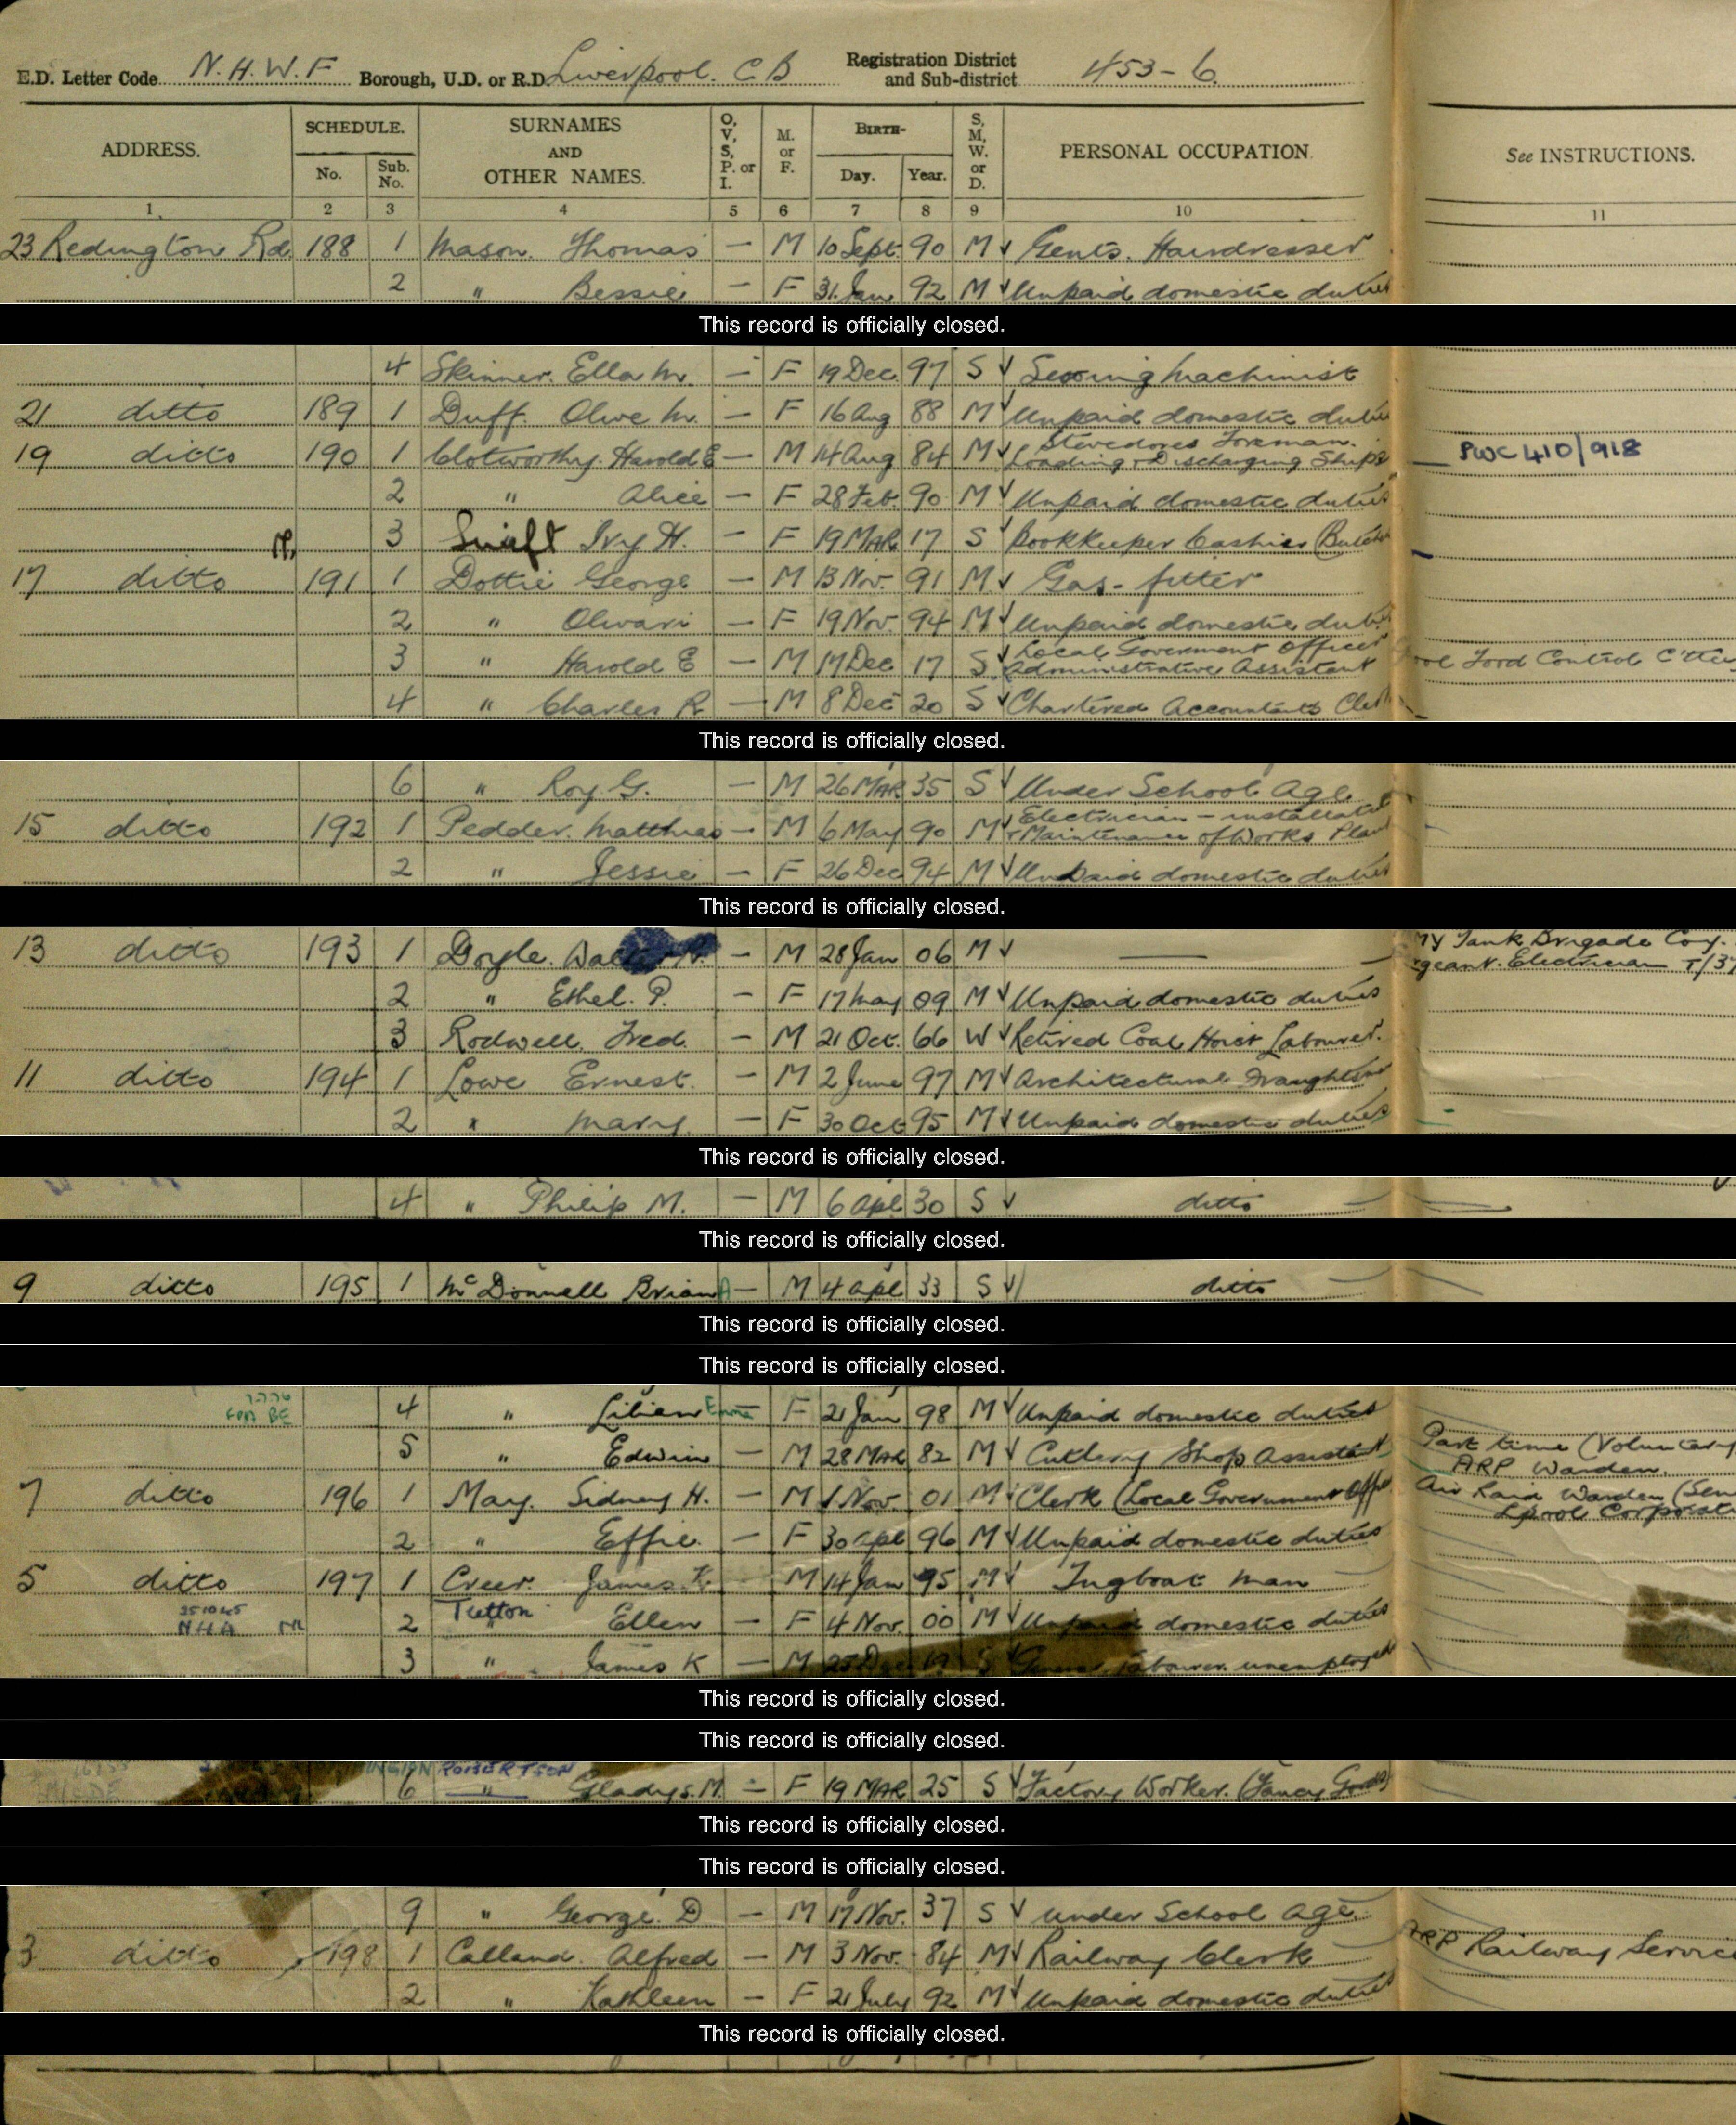 E.D. Letter Code N.H.W.F Borough, U.D. or R.D. Liverpool. C B Registration District and Sub-district 453-6.
ADDRESS. SCHEDULE. No. Sub. No. SURNAMES AND OTHER NAMES. O, V, S, P. or I. M. or F. BIRTH- Day. Year. S, M, W. or D. PERSONAL OCCUPATION. See INSTRUCTIONS.
1 2 3 4 5 6 7 8 9 10 11
23 Redington Rd. 188 1 Mason. Thomas — M 10 Sept. 90 M Gents. Hairdresser
2 " Bessie — F 31 Jan 92 M Unpaid domestic duties
This record is officially closed.
4 Skinner. Ella M. — F 19 Dec. 97 S Sewing Machinist
21 ditto 189 1 Duff. Olive M. — F 16 Aug 88 M Unpaid domestic duties
19 ditto 190 1 Clotworthy. Harold E — M 14 Aug 84 M Stevedores Foreman. Loading & Discharging Ships PWC 410/918
2 " Alice — F 28 Feb. 90 M Unpaid domestic duties
3 Swift Ivy H. — F 19 MAR 17 S Bookkeeper Cashier (Butch
17 ditto 191 1 Dottie George — M 13 Nov. 91 M Gas-fitter
2 " — F 19 Nov. 94 M Unpaid domestic duties
3 " Harold E — M 17 Dec 17 S Local Government Officer Administrative Assistant ool Food Control C'ttee
4 " Charles R — M 8 Dec 20 S Chartered Accountants Clerk
This record is officially closed.
6 " Roy G. — M 26 MAR 35 S Under School Age
15 ditto 192 1 Pedder. Matthias — M 6 May 90 M Electrician – installation & Maintenance of Works Plant
2 " Jessie — F 26 Dec 94 M Unpaid domestic duties
This record is officially closed.
13 ditto 193 1 Doyle. — M 28 Jan 06 M — my Tank Brigade Coy. rgeant. Electrician T/37
2 " Ethel. P. — F 17 May 09 M Unpaid domestic duties
3 Rodwell Fred. — M 21 Oct. 66 W Retired Coal Hoist Labourer.
11 ditto 194 1 Lowe Ernest. — M 2 June 97 M Architectural Draughtsman
2 " Mary. — F 30 Oct 95 M Unpaid domestic duties
This record is officially closed.
4 " Philip M. — M 6 Apl 30 S ditto
This record is officially closed.
9 ditto 195 1 McDonnell Brian A — M 4 Apl 33 S ditto
This record is officially closed.
This record is officially closed.
4 " Lilian Emma F 21 Jan 98 M Unpaid domestic duties
5 " Edwin — M 28 MAR 82 M Cutlery Shop Assistant Part time (Voluntary ARP Warden.
7 ditto 196 1 May. Sidney H. — M 1 Nov. 01 M Clerk (Local Government Offi Air Raid Warden (Sen Lpool Corporat
2 " Effie. — F 30 Apl 96 M Unpaid domestic duties
5 ditto 197 1 Creer. James K. M 14 Jan 95 M Tugboat Man
251045 NHA NR 2 Tretton " Ellen — F 4 Nov. 00 M Unpaid domestic duties
3 " James K — M 25 Dec 19 S General Labourer. unemployed
This record is officially closed.
This record is officially closed.
6 ROBERTSON " Gladys. M. — F 19 MAR 25 S Factory Worker. (Fancy Goods)
This record is officially closed.
This record is officially closed.
9 " George. D — M 17 Nov. 37 S under School age.
3 ditto 198 1 Calland. Alfred — M 3 Nov. 84 M Railway Clerk ARP Railway Service
2 " Kathleen — F 21 July 92 M Unpaid domestic duties
This record is officially closed.